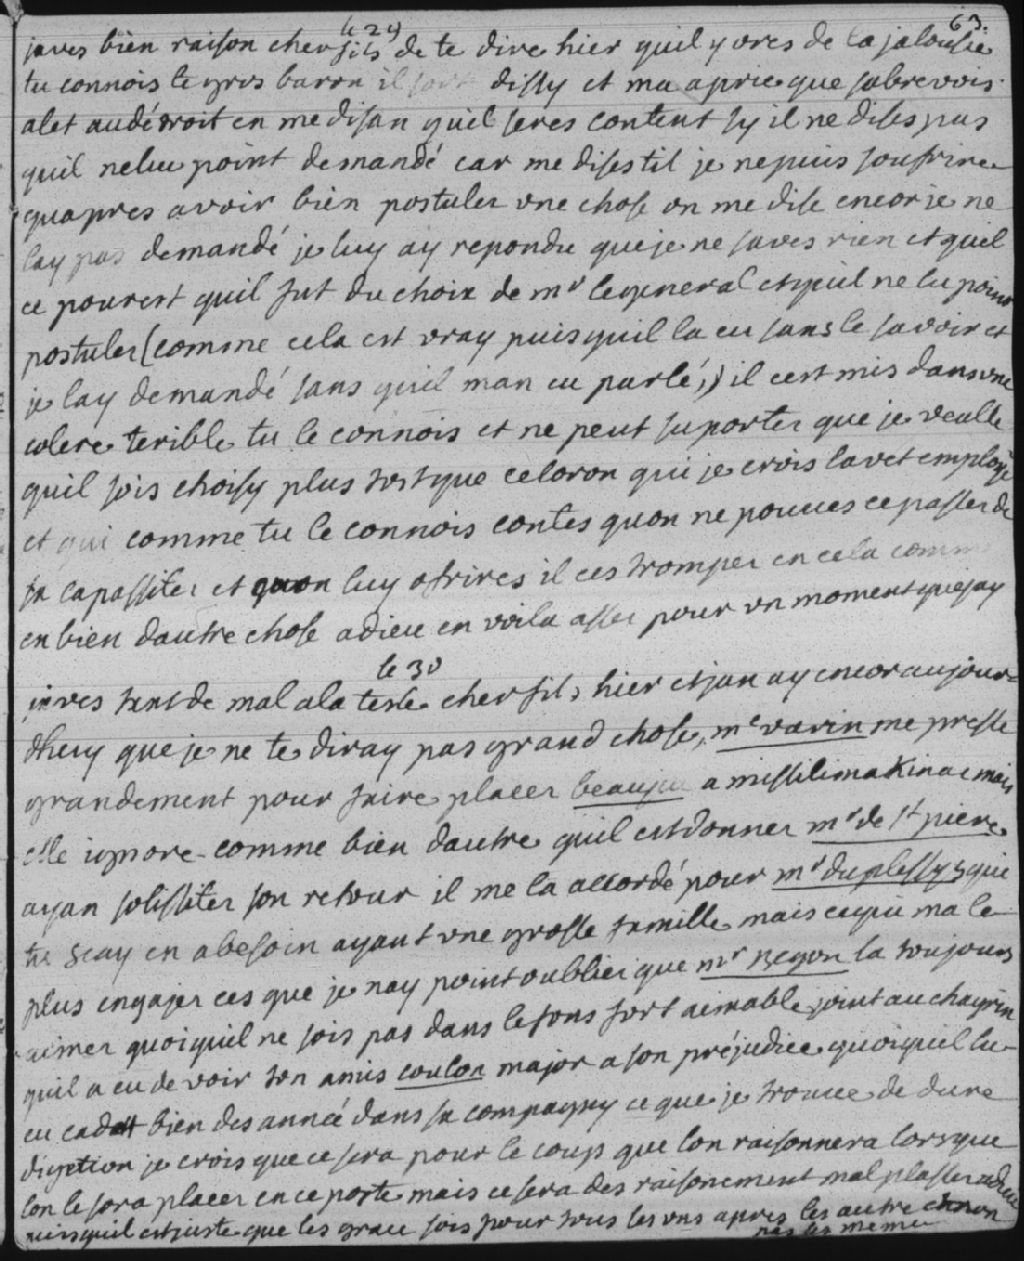 63.
le 29
javes bien raison cher fils de te dire hier quil y ores de la jalousie
tu connois le gros baron il sort dissy et ma aprie que sabrevois
alet au détroit en me disan quil seres content sy il ne dises pas
quil nelue point demandé car me dises til je nepuis soufrire
quapres avoir bien postuler une chose on me dise encor je ne
lay pas demandé je luy ay repondu que je ne saves rien et quil
ce pouret quil fut du choix de mr le general et quil ne lu point
postuler (comme cela est vray puisquil la eu sans le savoir et
je lay demandé sans quil man eu parlé,) il cest mis dans une
colere terible tu le connois et ne peut suporter que je veulle
quil sois choisy plus tost que celoron qui je crois lavet employé
et qui comme tu le connois contes quon ne pouves ce passer de
sa capassiter et quon luy ofrires il ces tromper en cela comme
en bien dautre chose adieu en voila asses pour un moment que jay
le 30
javes tent de mal a la teste cher fils hier et jan ay encor aujour
dhuy que je ne te diray pas grand chose, me varin me presse
grandement pour faire placer beaujeu a missilimakinac mais
elle ignore comme bien dautre quil est donner mr de st piere
ayan solissiter son retour il me la accordé pour mr duplessys qui
tu scay en a besoin ayant une grosse famille mais ce qui ma le
plus engajer ces que je nay point oublier que mr Begon la toujours
aimer quoiquil ne sois pas dans le fons fort aimable joint au chagrin
quil a eu de voir ton amis coulon major a son préjudice quoiquil lu
eu cadett bien des anné dans sa compagny ce que je trouve de dure
digetion je crois que ce sera pour le coup que lon raisonnera lorsque
lon le sora placer en ce poste mais ce sera des raisonement mal plasser adieu
puisquil est juste que les grace sois pour tous les uns apres les autre
pas les meme